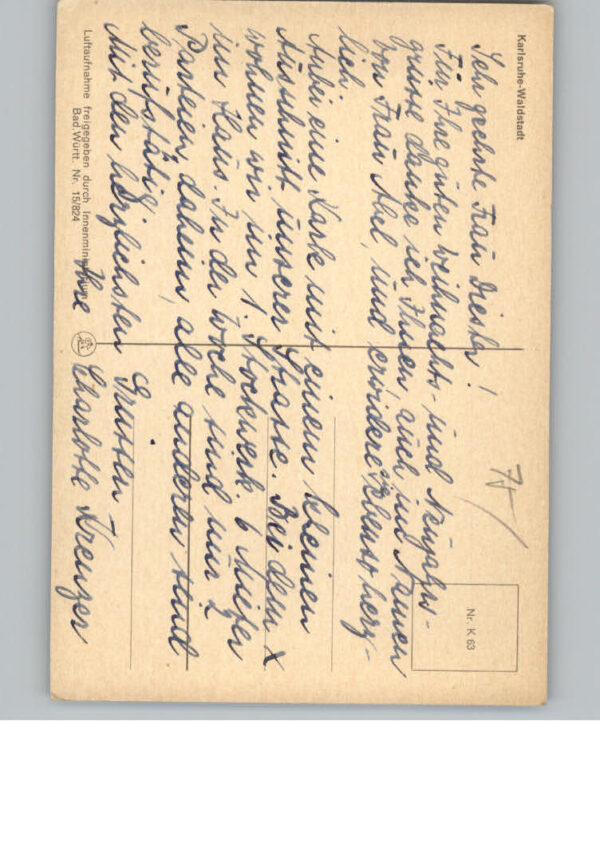 Karlsruhe-Waldstadt
Sehr geehrte Frau !
Für Ihre guten Weihnachts- und Neujahrs-
grüsse danke ich Ihnen, auch im Namen
von Frau Abel, und erwidere sie ebenso herz-
lich.
Anbei eine Karte mit einem kleinen
Ausschnitt unserer Strasse. Bei dem X
wohnen wir im 1. Stockwerk. 6 Mieter
im Haus. In der Woche sind nur 2
Parteien daheim, alle anderen sind
berufstätig.
Mit den herzlichsten Grüssen
Ihre Charlotte Kreuzer
Luftaufnahme freigegeben durch Innenministerium
Bad.Württ. Nr. 15/824
Nr. K 63